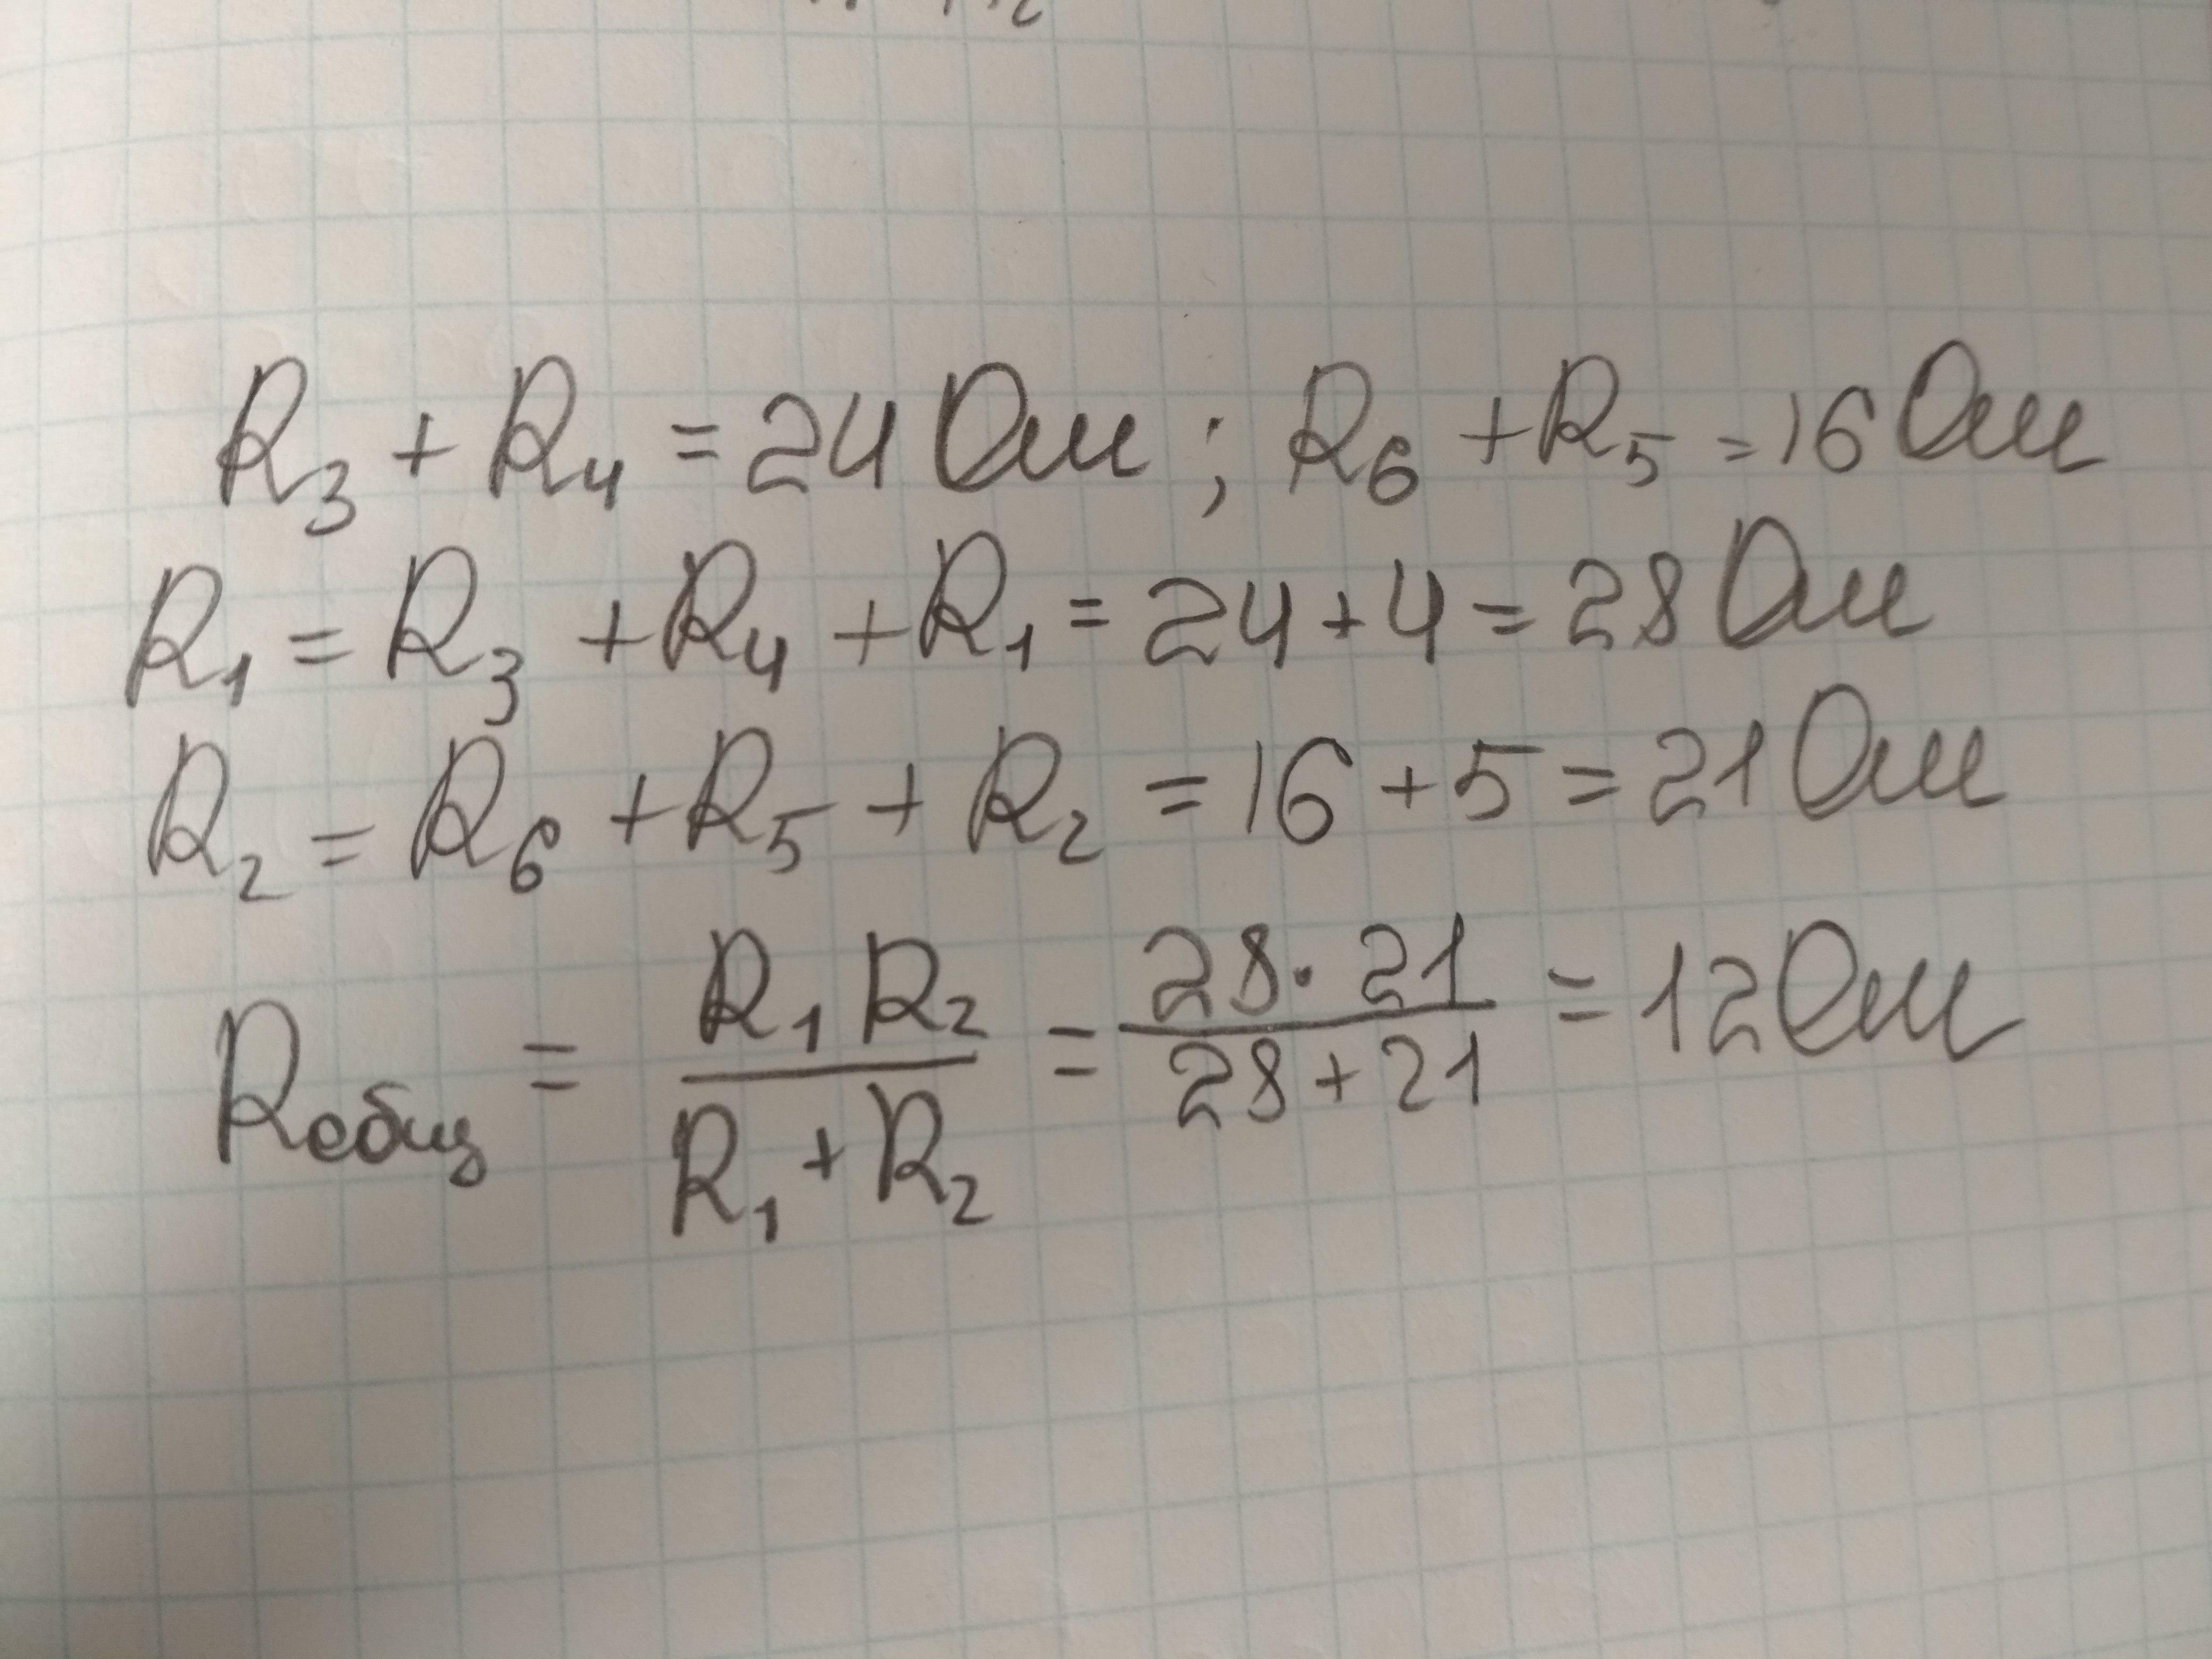 R₃ + R₄ = 24 Ом ; R₆ + R₅ = 16 Ом
R₁ = R₃ + R₄ + R₁ = 24 + 4 = 28 Ом
R₂ = R₆ + R₅ + R₂ = 16 + 5 = 21 Ом
Rобщ = R₁ R₂ / R₁ + R₂ = 28 · 21 / 28 + 21 = 12 Ом